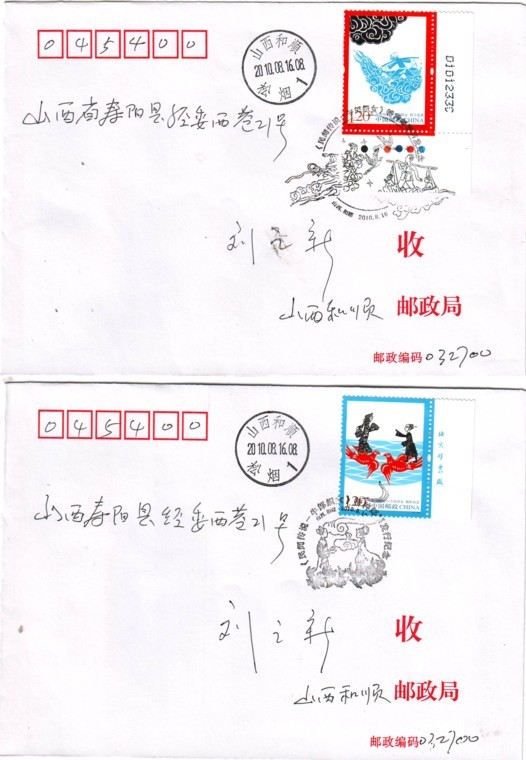 045400
山西和顺
2010.08.16.08
松烟 1
1.20
中国邮政 CHINA
D1012330
山西省寿阳县经委西巷21号
山西.和顺 2010.8.16
刘之新 收
山西和顺 邮政局
邮政编码 032700
045400
山西和顺
2010.08.16.08
松烟 1
1.20
中国邮政 CHINA
山西寿阳县经委西巷21号
刘之新 收
山西和顺 邮政局
邮政编码 032700